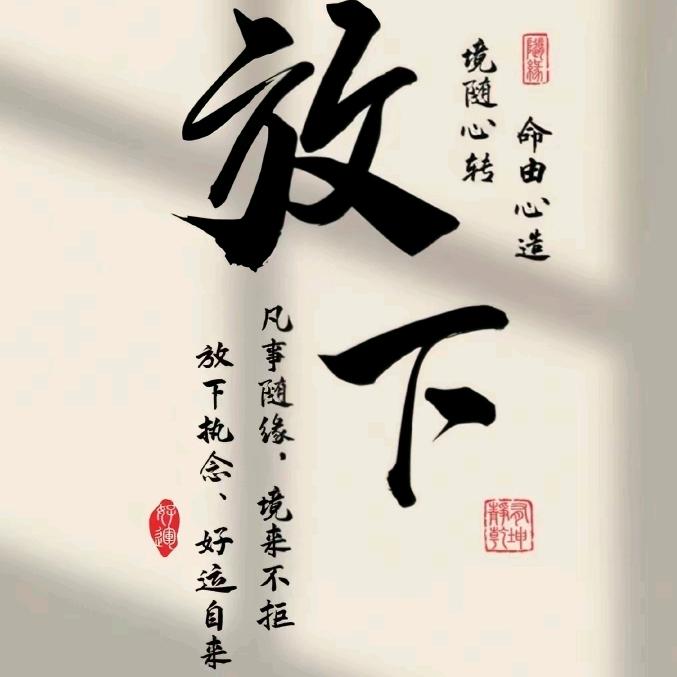 隨緣
命由心造
境随心转
放下
凡事随缘，境来不拒
放下执念、好运自来
好運
靜乾坤